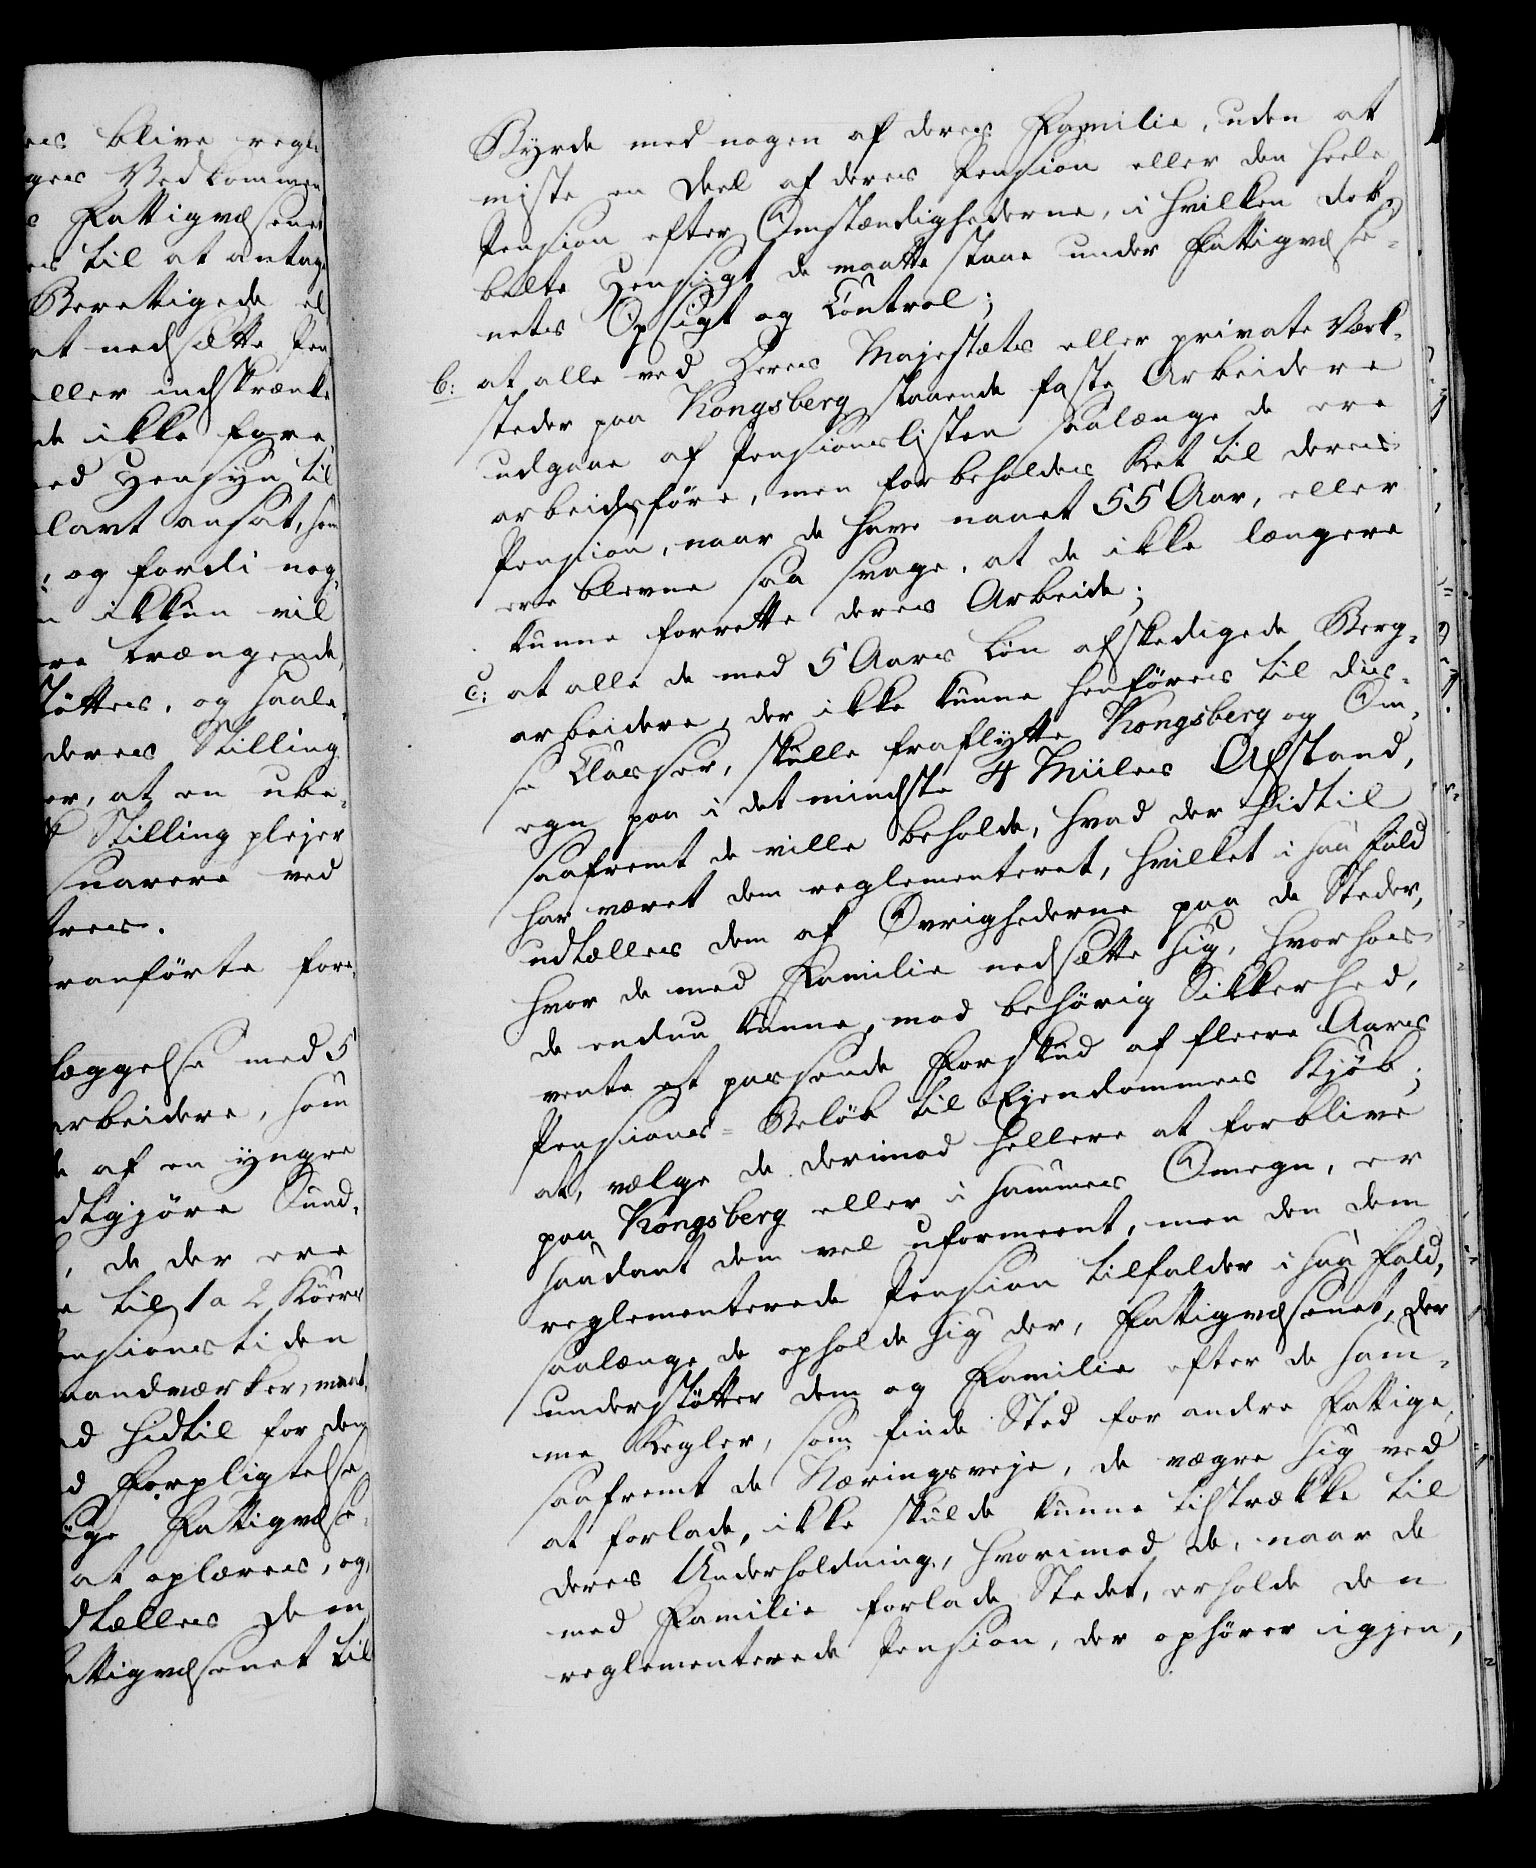 es blive regle
geres Vedkommen
s Fattigvæsenet
es til at antage
Berettigede el
at nedsætte Pen
eller indskrænke
de ikke fore
ed Hensyn til
lavt ansat, som
, og fordi nog
n ikkun vil
re trængende,
støttes, og saale-
deres Stilling
er, at en ube-
Stilling plejer
snarere ved
tres.
ranförte fore-
læggelse med 5
arbeidere, som
de af en yngre
dtgjøre Sund-
, de der ere
e til 1 a 2 Köers
ensionstiden
Haandværker, maat
d hidtil for dem
d Forpligtelse
ige Fattigvæse-
at oplæres, og
dtælles dem
attigvæsenet til
Byrde med nogen af deres Familie, uden at
miste en Deel af deres Pension eller den heele
Pension efter Omstændighederne, i hvilken dob-
belte Hensigt de maatte staae under Fattigvæse-
nets Opsigt og Control;
b: at alle ved Deres Majestæts eller private Værk-
steder paa Kongsberg staaende faste Arbeidere
udgaae af Pensionslisten saalænge de ere
arbeidsföre, men forbeholdes Ret til deres
Pension, naar de have naaet 55 Aar, eller
ere blevne saa svage, at de ikke længere
kunne forrette deres Arbeide;
c: at alle de med 5 Aars Løn afskedigede Berg-
arbeidere, der ikke kunne henföres til dis-
se Classer, skulle fraflytte Kongsberg og Om-
egn paa i det mindste 4 Miiles Afstand,
saafremt de ville beholde, hvad der hidtil
har været dem reglementeret, hvilket i saa Fald
udtælles dem af Øvrighederne paa de Steder,
hvor de med Familie nedsætte sig, hvorhos
de endnu kunne, mod behörig Sikkerhed,
vente et passende Forskud af fleere Aars
Pensions-Beløb til Ejendommes Kjöb;
at, vælge de derimod hellere at forblive
paa Kongsberg eller i sammes Omegn, er
saadant dem vel uformeent, men den dem
reglementerede Pension tilfalder i saa Fald,
saalænge de opholde sig der, Fattigvæsenet, der
understøtter dem og Familie efter de sam-
me Regler, som finde Sted for andre Fattige,
saafremt de Næringsveje, de vægre sig ved
at forlade, ikke skulde kunne tilstrække til
deres Underholdning, hvorimod de, naar de
med Familie forlade Stedet, erholde den
reglementerede Pension, der ophörer igjen,